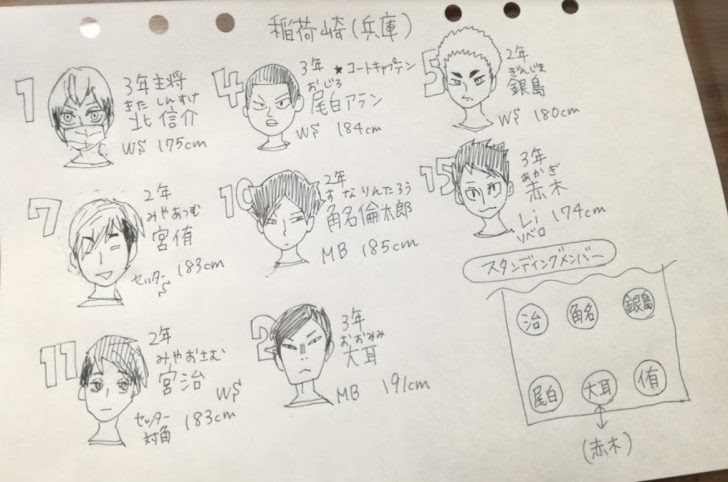 稲荷崎(兵庫)
1
3年主将
きた しんすけ
北 信介
WS 175cm
4
3年 ★コートキャプテン
おじろ
尾白アラン
WS 184cm
5
2年
ぎんじま
銀島
WS 180cm
7
2年
みやあつむ
宮侑
セッター 183cm
S
10
2年
すなりんたろう
角名倫太郎
MB 185cm
15
3年
あかぎ
赤木
Li 174cm
リベロ
11
2年
みやおさむ
宮治
WS
セッター 183cm
対角
2
3年
おおみみ
大耳
MB 191cm
スタンディングメンバー
治 角名 銀島
尾白 大耳 侑
(赤木)